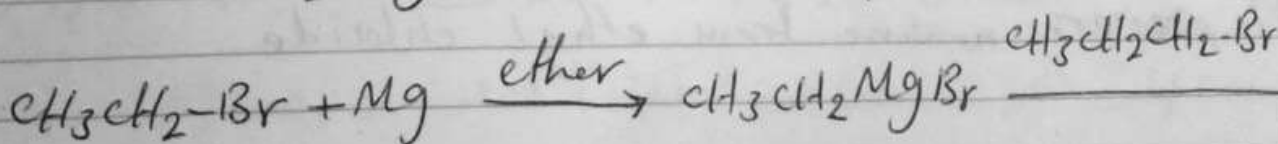 CH3CH2-Br + Mg ether→ CH3CH2MgBr CH3CH2CH2-Br